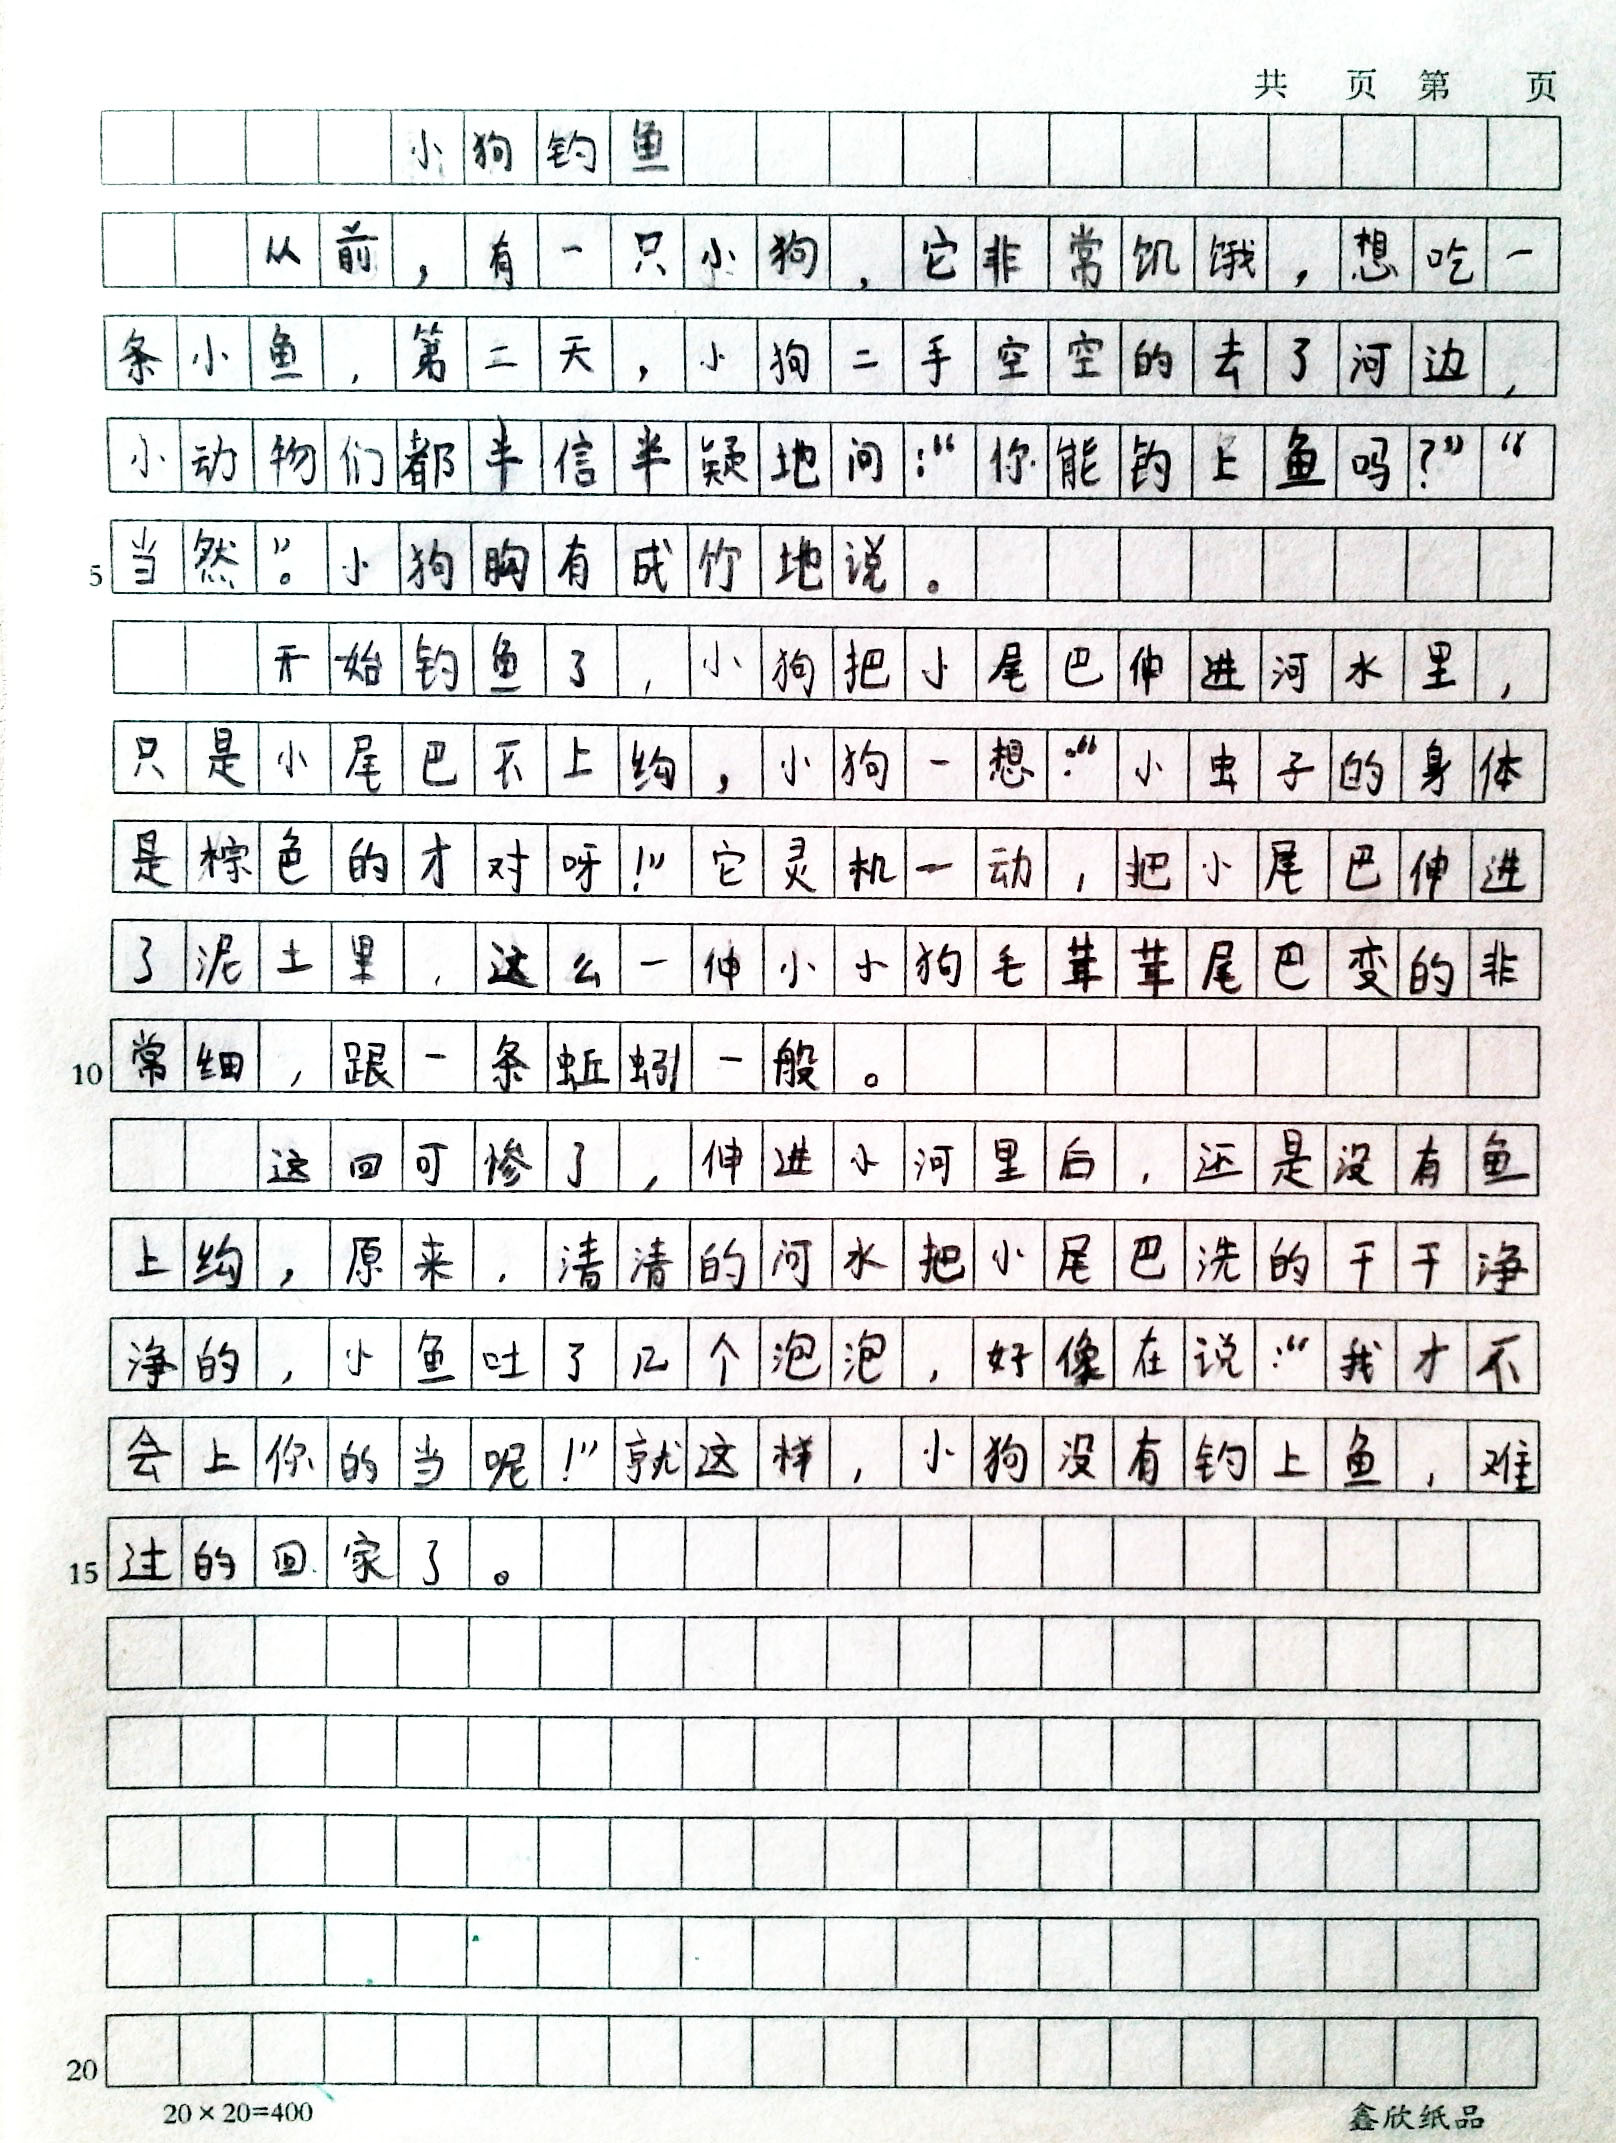 共 页 第 页
小狗钓鱼
从前，有一只小狗，它非常饥饿，想吃一
条小鱼，第二天，小狗二手空空的去了河边，
小动物们都半信半疑地问：“你能钓上鱼吗？”“
5 当然”。小狗胸有成竹地说。
开始钓鱼了，小狗把小尾巴伸进河水里，
只是小尾巴不上钩，小狗一想：“小虫子的身体
是棕色的才对呀！”它灵机一动，把小尾巴伸进
了泥土里，这么一伸小小狗毛茸茸尾巴变的非
10 常细，跟一条蚯蚓一般。
这回可惨了，伸进小河里后，还是没有鱼
上钩，原来，清清的河水把小尾巴洗的干干净
净的，小鱼吐了几个泡泡，好像在说：“我才不
会上你的当呢！”就这样，小狗没有钓上鱼，难
15 过的回家了。
20
20×20=400 鑫欣纸品